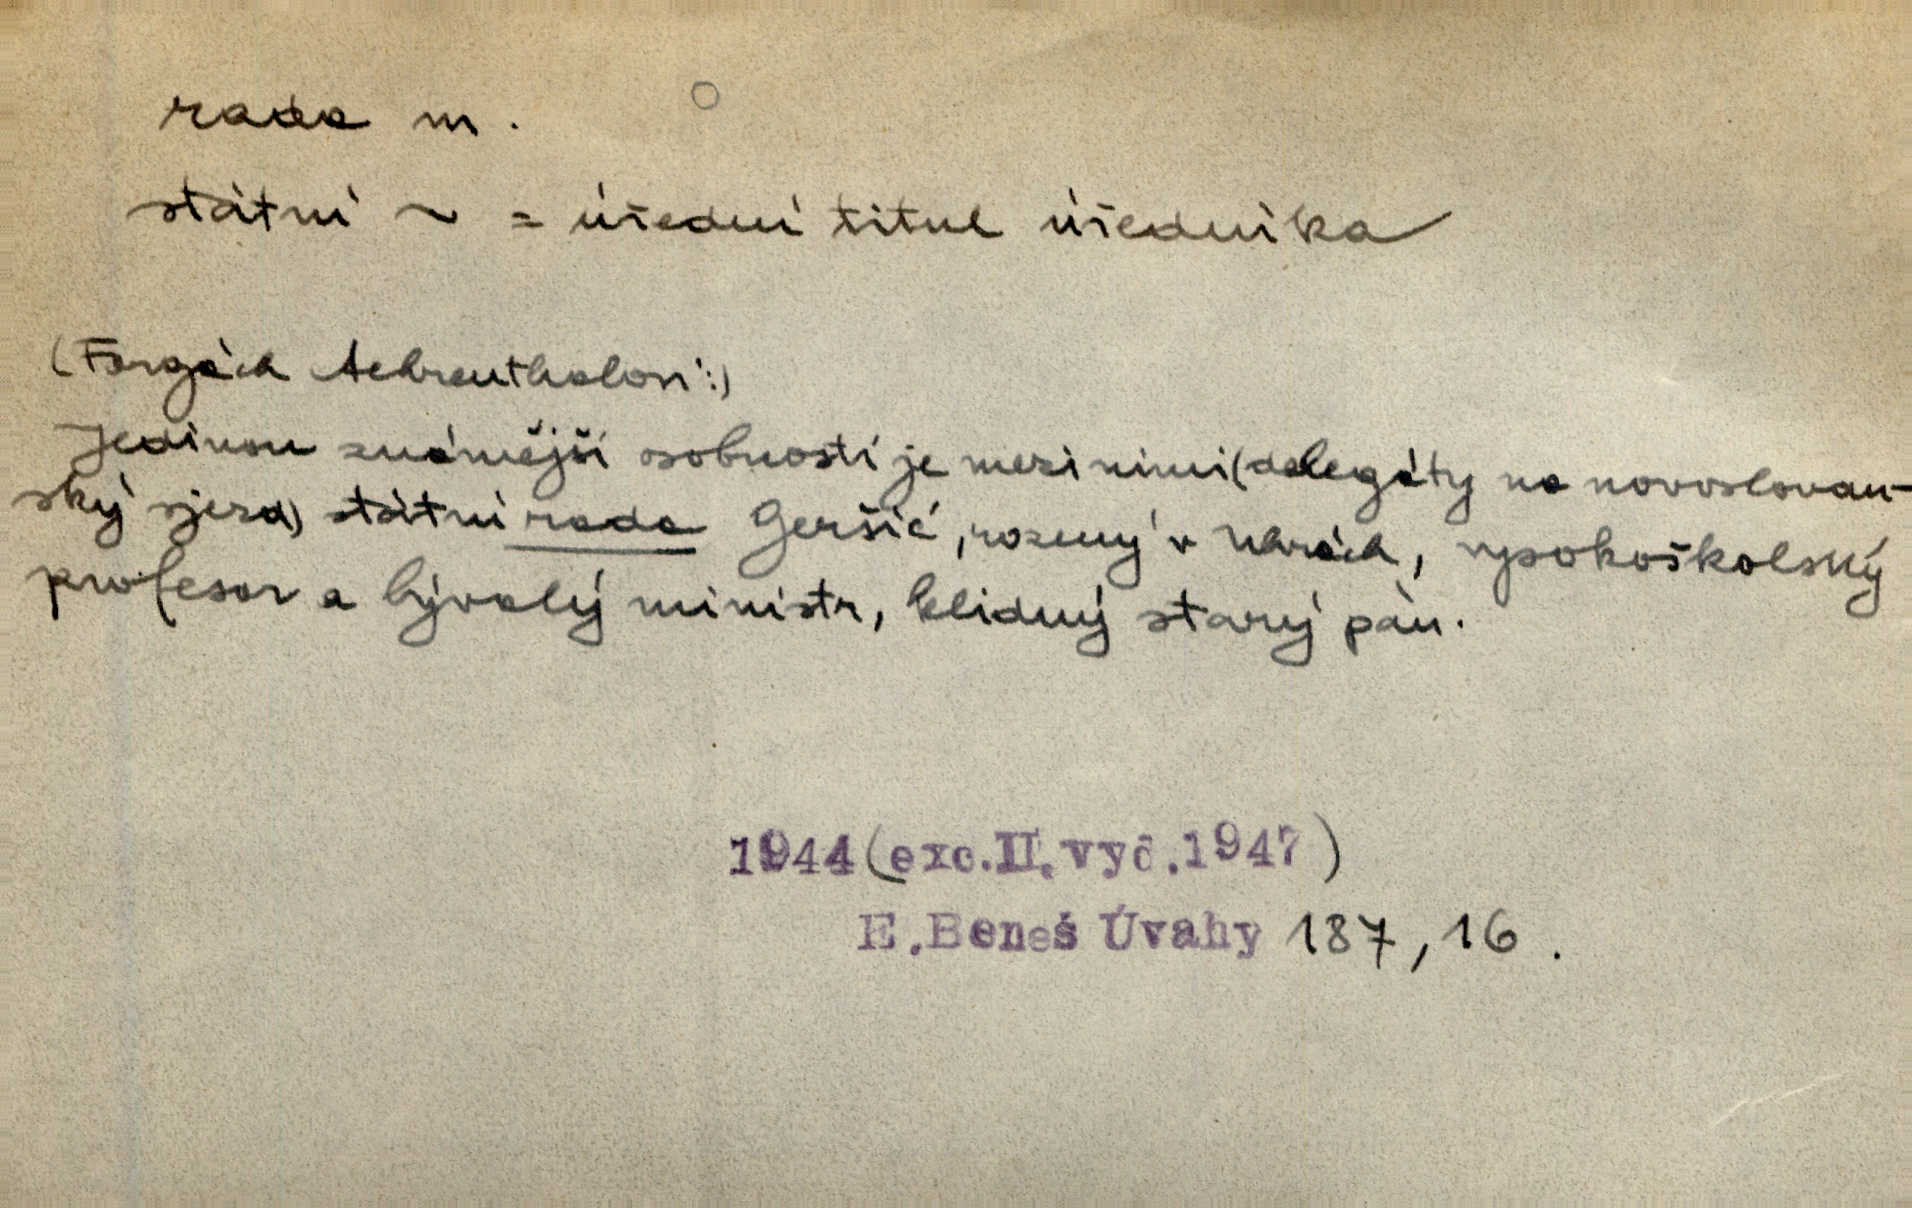 rada m.
státní ~ = úřední titul úředníka
(Forgách Aehrenthalovi:)
Jedinou známější osobností je mezi nimi (delegáty na novoslovan-
ský sjezd) státní rada Geršić, rozený v Uhrách, vysokoškolský
profesor a bývalý ministr, klidný starý pán.
1944 (exc.II.vyd.1947)
E.Beneš Úvahy 187, 16.